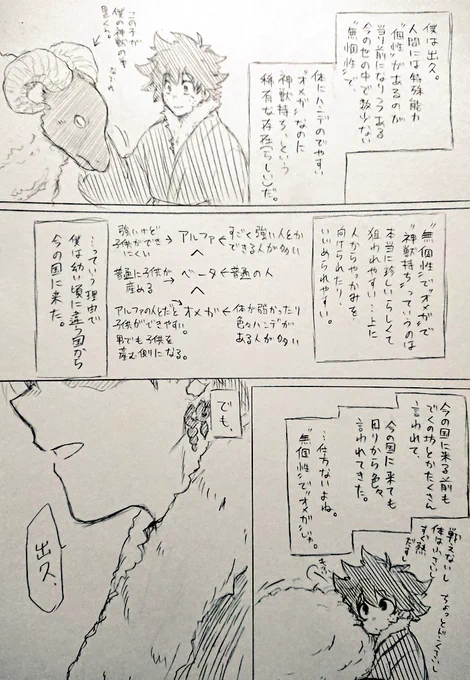 僕は出久。
人間には特殊能力
"個性"があるのが
当り前になりつつある
今のこの世の中で数少ない
"無個性"で、
体にハンデのでやすい
"オメガ"なのに
"神獣持ち"という
稀有な存在(らしい)だ。
この子が
僕の神獣の
黒くん。
"無個性"で"オメガ"で
"神獣持ち"っていうのは
本当に珍しいらしくて
狙われやすい…上に
人からやっかみを
向けられたり、
いいめられやすい。
すごく強い人とか
できる人が多い
アルファ
強いけど
子供ができ
にくい
普通の人
ベータ
普通に子供が
産める
体が弱かったり
色々ハンデが
ある人が多い
オメガ
アルファの人だと
子供ができやすい。
男でも子供を
産む側になる。
…っていう理由で
僕は幼い頃に違う国から
今の国に来た。
今の国に来る前も
でくの坊とかたくさん
言われて、
今の国に来ても
周りから色々
言われてきた。
…仕方ないよね。
"無個性"で"オメガ"じゃ。
戦えないし
体は小さいし
すぐ熱
だすし
でも、
出久、